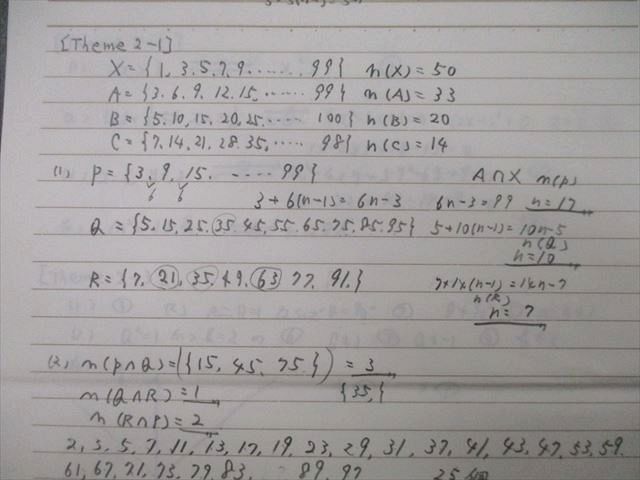 [Theme 2-1]
X = {1, 3. 5. 7. 9. ...... 99} n(X) = 50
A = {3. 6. 9. 12. 15. ...... 99} n(A) = 33
B = {5. 10, 15, 20, 25, ...... 100} n(B) = 20
C = {7. 14. 21, 28. 35, ...... 98} n(C) = 14
(1) P = {3. 9. 15. ...... 99} A∩X n(P)
6 6
3 + 6(n-1) = 6n-3 6n-3 = 99 n = 17
Q = {5. 15. 25. 35. 45. 55. 65. 75. 85. 95} 5 + 10(n-1) = 10n-5
n(Q)
n = 10
R = {7. 21, 35. 49. 63 77. 91.} 7 + 14(n-1) = 14n-7
n(R)
n = 7
(2) n(P∩Q) = ({15, 45. 75.}) = 3
n(Q∩R) = 1 {35,}
n(R∩P) = 2
2, 3, 5, 7, 11, 13, 17, 19, 23, 29, 31, 37, 41, 43, 47, 53, 59.
61, 67, 71, 73, 79, 83, 89, 97